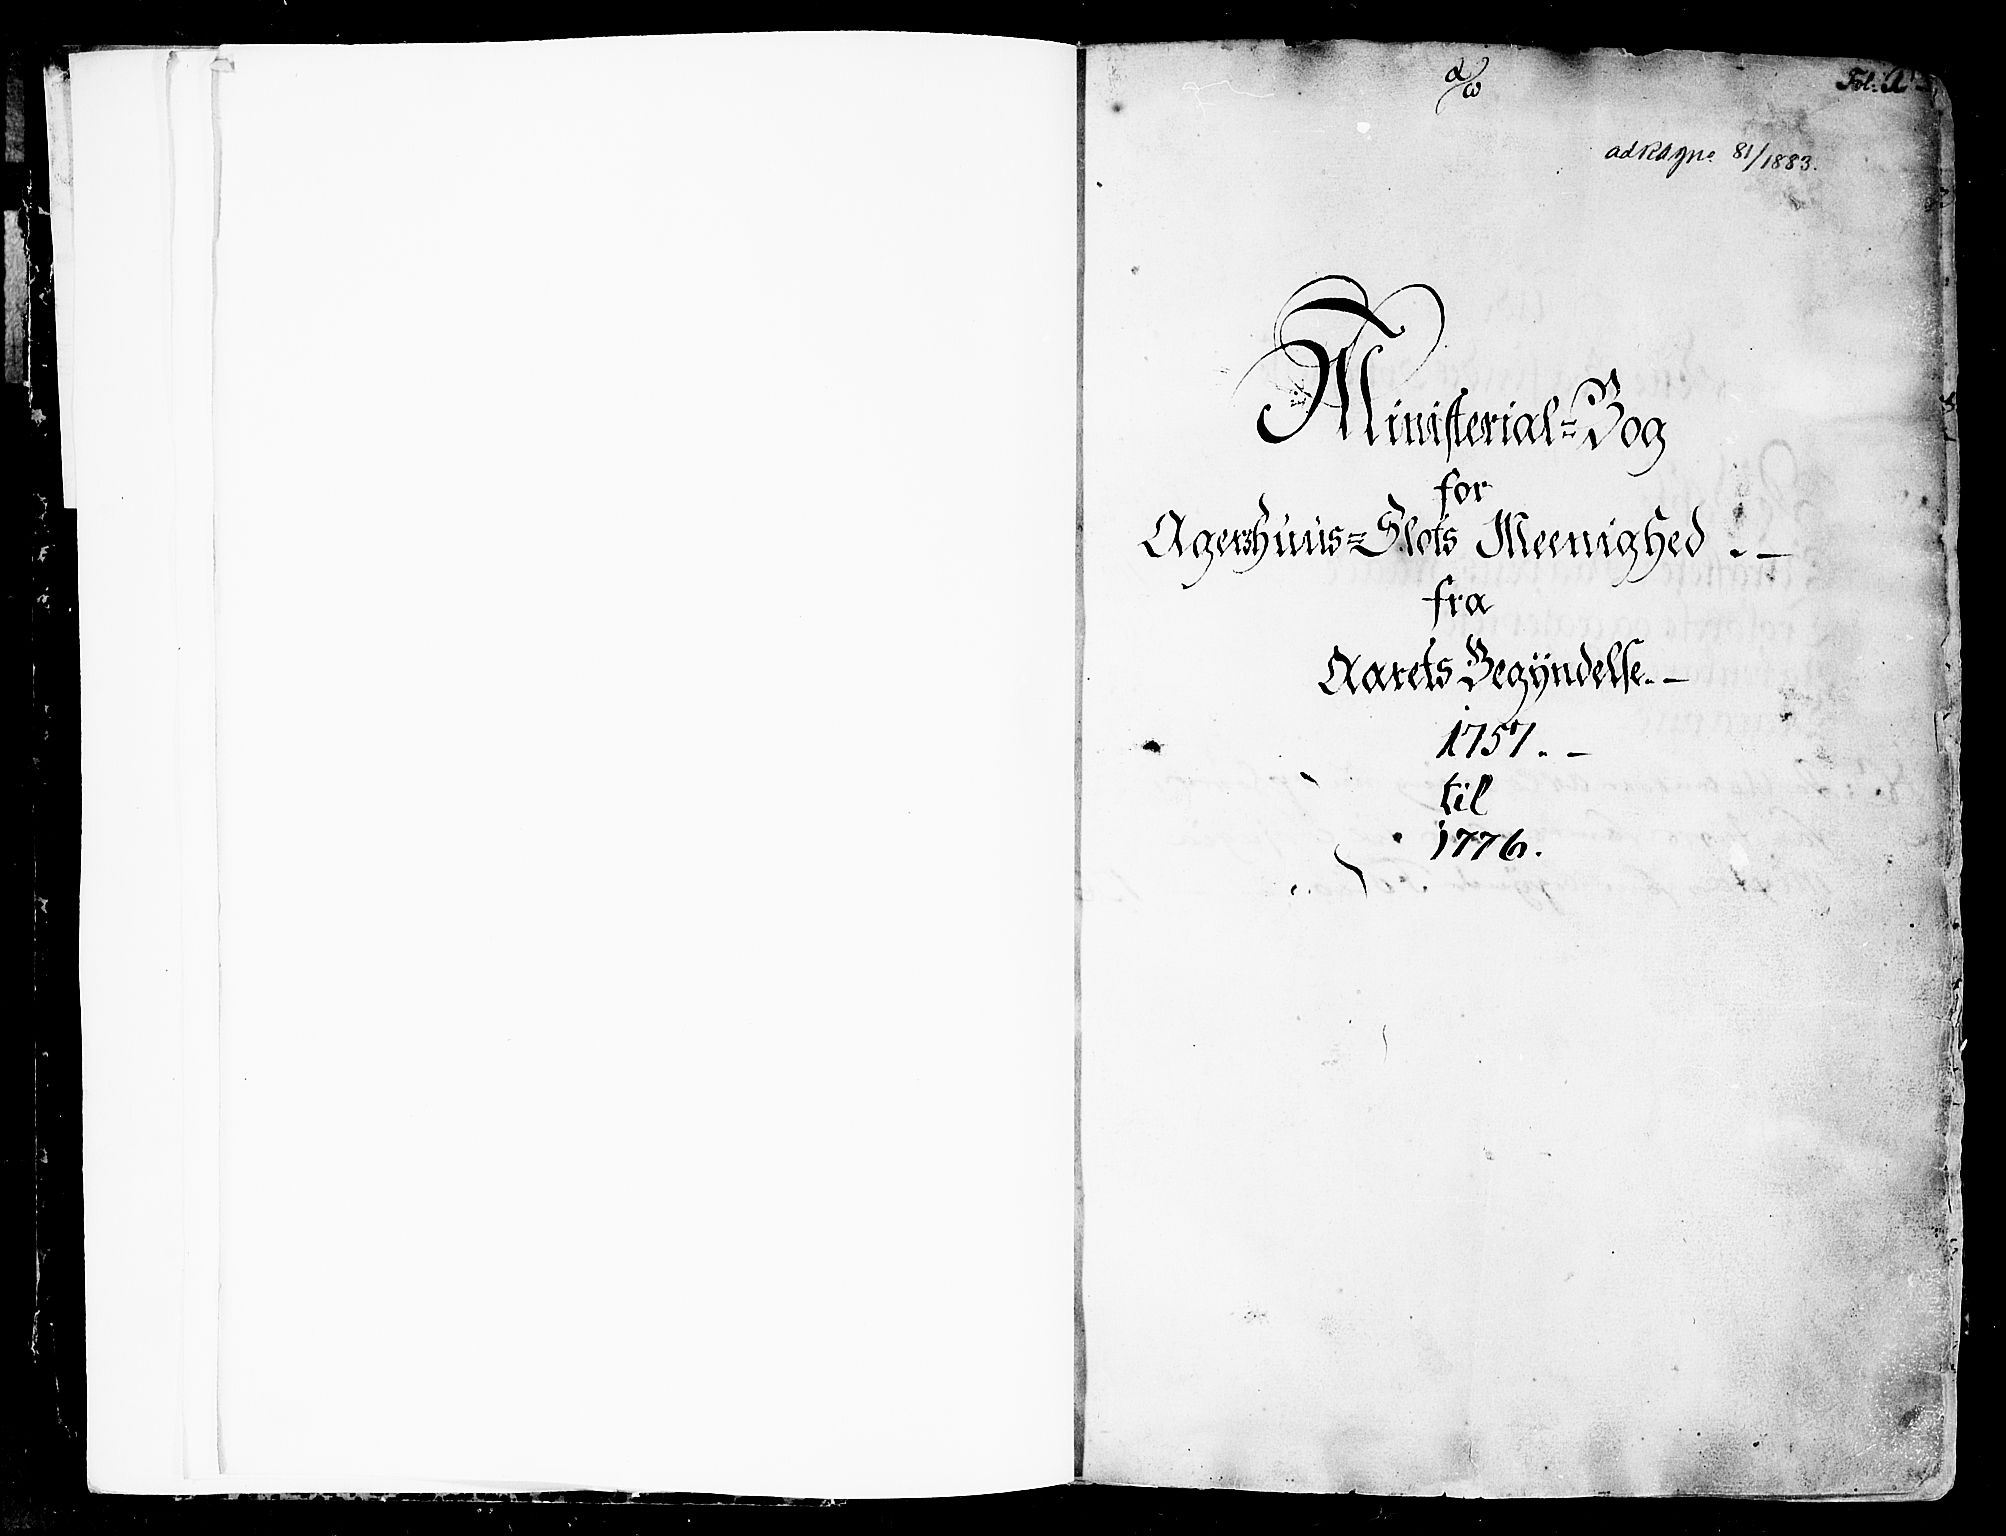 α/ω
Fol: A
ad RAgno 81/1883.
Ministerial=Bog
for
Agershuus=Slots Meenighed . —
fra
Aarets Begÿndelse. —
1757. —
til
1776.